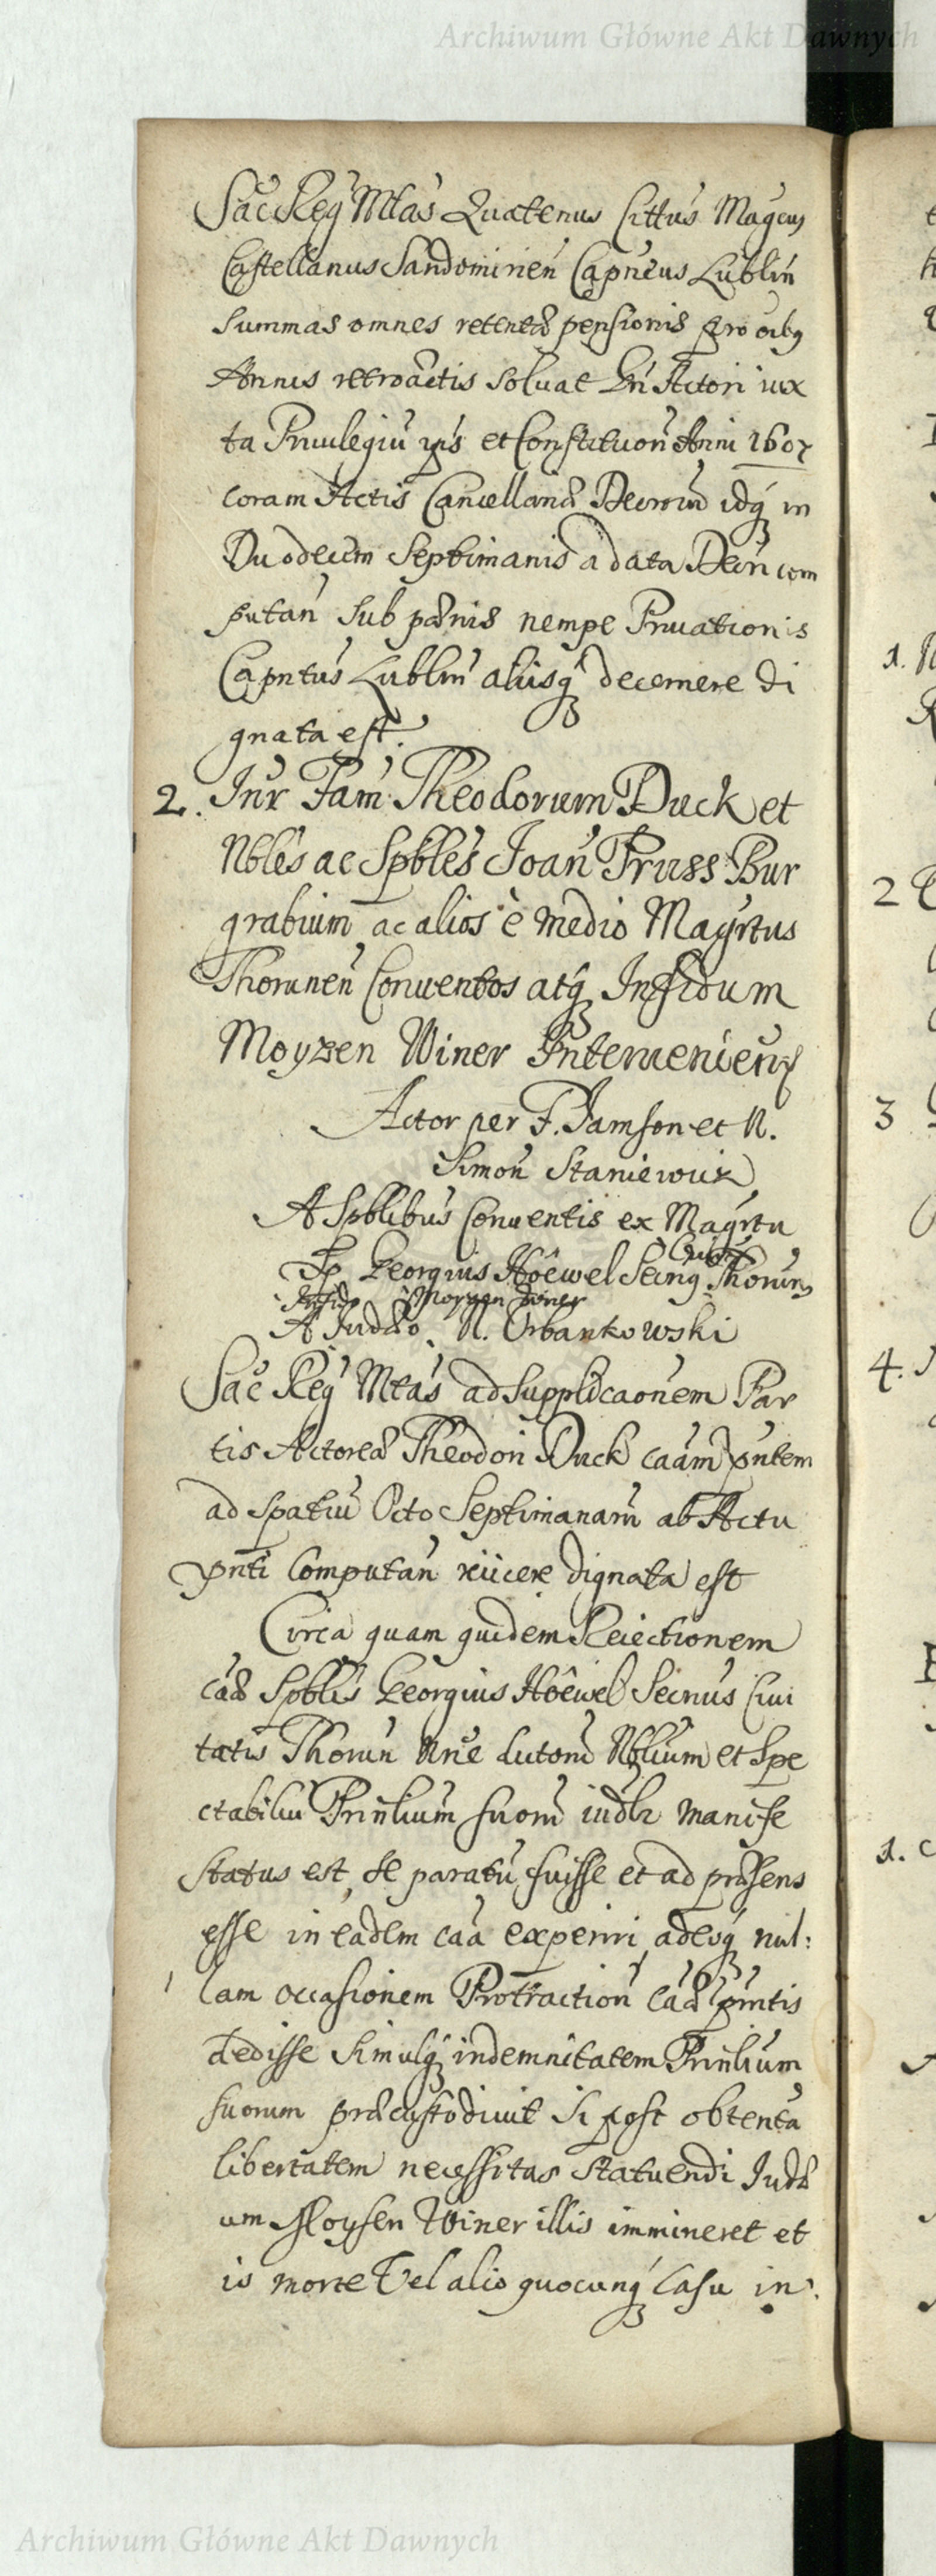 Archiwum Główne Akt Dawnych
Sac Reg Mtas Quatenus Cittus Magcus
Castellanus Sandomirien Capneus Lublin
summas omnes retentæ pensionis pro oibq
Annis retroactis soluat Actori iux
ta Priuilegiu ipsis et Constituon Anni 1607
coram Actis Cancellariæ Decrorum idq in
Duodecim Septimanis a data Decri com
putan sub pænis nempe Priuationis
Capntus Lublin aliisq decernere di
gnata est.
2. Intr Fam Theodorum Duck et
Nbles ac Spbles Joan Pruss Bur
grabium ac alios è medio Magrtus
Thorunen Conuentos atq Infidum
Moyzen Winer Intervenien
Actor per F. Jamson et N.
Simon Staniewicz
A Spblibus Conuentis ex Magrtu
Sp Georgius Höewel Secrig Ciuit Thorun
Infid Moyzen Winer
A Judæo N. Urbankowski
Sac Reg Mtas ad supplicaonem Par
tis Actoreæ Theodori Duck caam pntem
ad spatiu Octo Septimanaru ab Actu
pnti computan reiicere dignata est
Circa quam quidem Reiectionem
caæ Spblis Georgius Höewel Secrius Ciui
tatis Thorun Nne Autoru Nblium et Spe
ctabiliu Prinlium suoru iudlr manife
status est, se paratu fuisse et ad præsens
esse in eadem caa experiri, adeoq nul:
lam occasionem Protraction caæ pntis
dedisse simulq indemnitatem Prinlium
suorum præcustodiuit si post obtenta
libertatem necessitas statuendi Judæ
um Moysen Winer illis immineret et
is morte Vel alio quocunq Casu in:
1.
2
3
4.
1.
Archiwum Główne Akt Dawnych